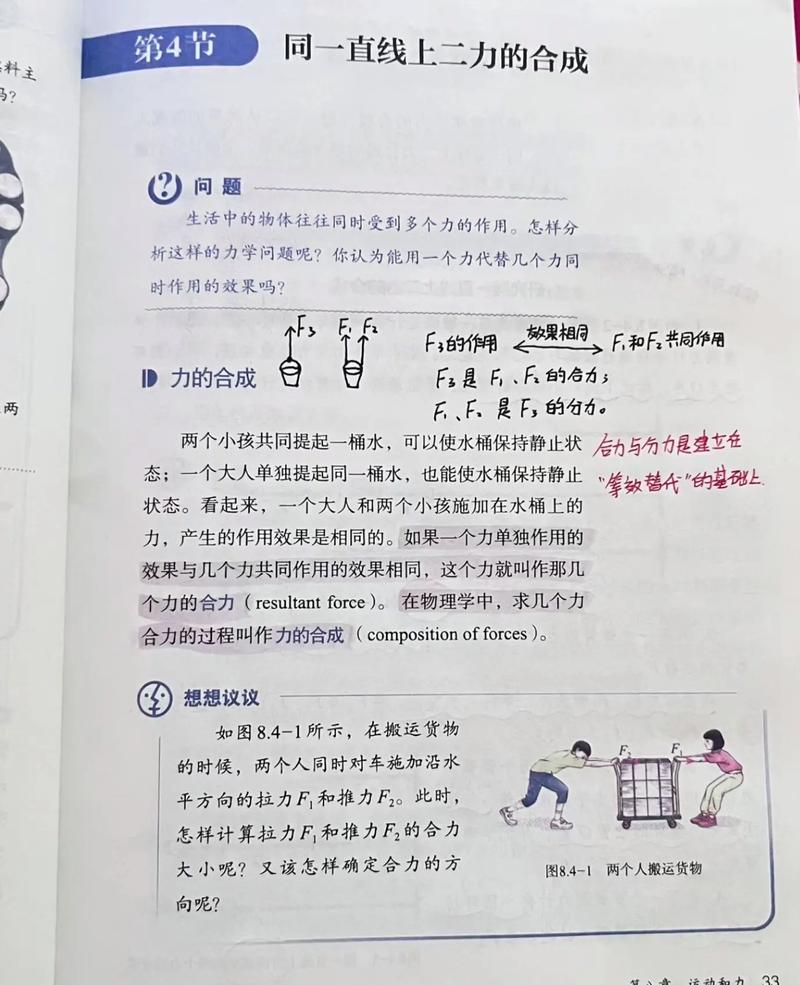 料主
吗?
两
第4节 同一直线上二力的合成
问题
生活中的物体往往同时受到多个力的作用。怎样分
析这样的力学问题呢？你认为能用一个力代替几个力同
时作用的效果吗？
F₃ F₁ F₂
F₃的作用 效果相同 F₁和F₂共同作用
F₃是 F₁、F₂的合力；
F₁、F₂是F₃的分力。
力的合成
两个小孩共同提起一桶水，可以使水桶保持静止状
态；一个大人单独提起同一桶水，也能使水桶保持静止
状态。看起来，一个大人和两个小孩施加在水桶上的
力，产生的作用效果是相同的。如果一个力单独作用的
效果与几个力共同作用的效果相同，这个力就叫作那几
个力的合力（resultant force）。在物理学中，求几个力
合力的过程叫作力的合成（composition of forces）。
合力与分力是建立在
“等效替代”的基础上.
想想议议
如图8.4-1所示，在搬运货物
的时候，两个人同时对车施加沿水
平方向的拉力F₁和推力F₂。此时，
怎样计算拉力F₁和推力F₂的合力
大小呢？又该怎样确定合力的方
向呢？
F₂ F₁
图8.4-1 两个人搬运货物
第八章 运动和力 33